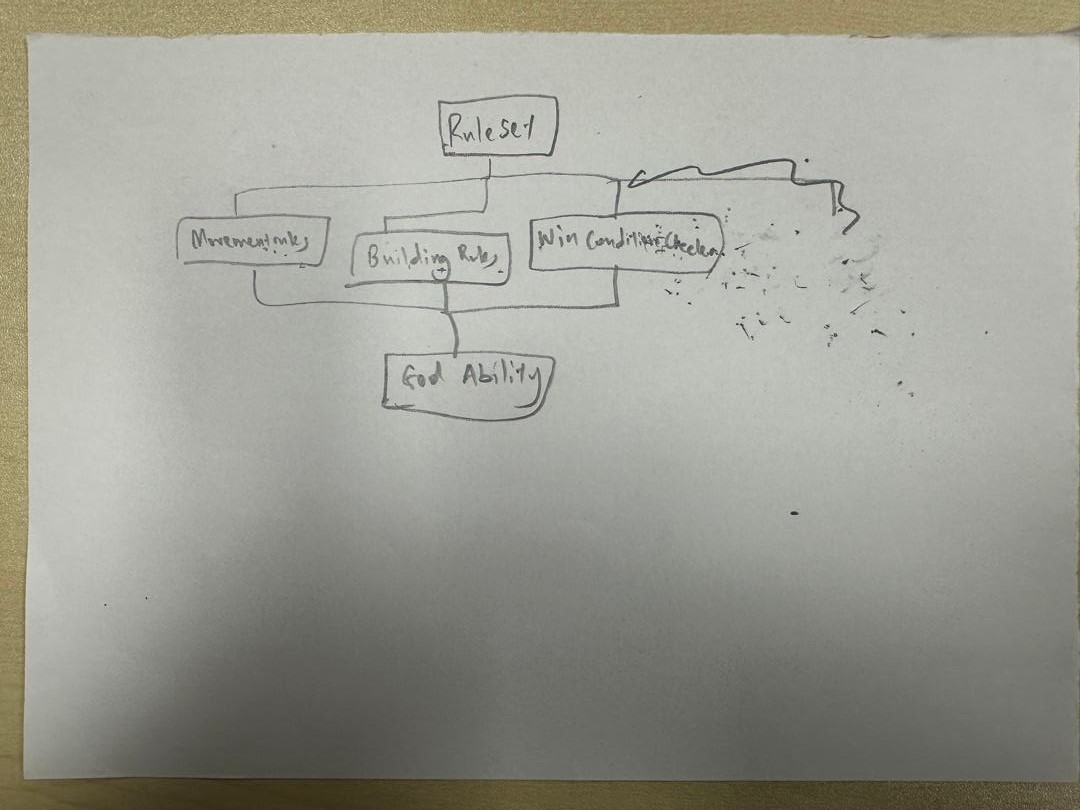 Ruleset
Movement rules
Building Rules
Win Condition Checker
God Ability